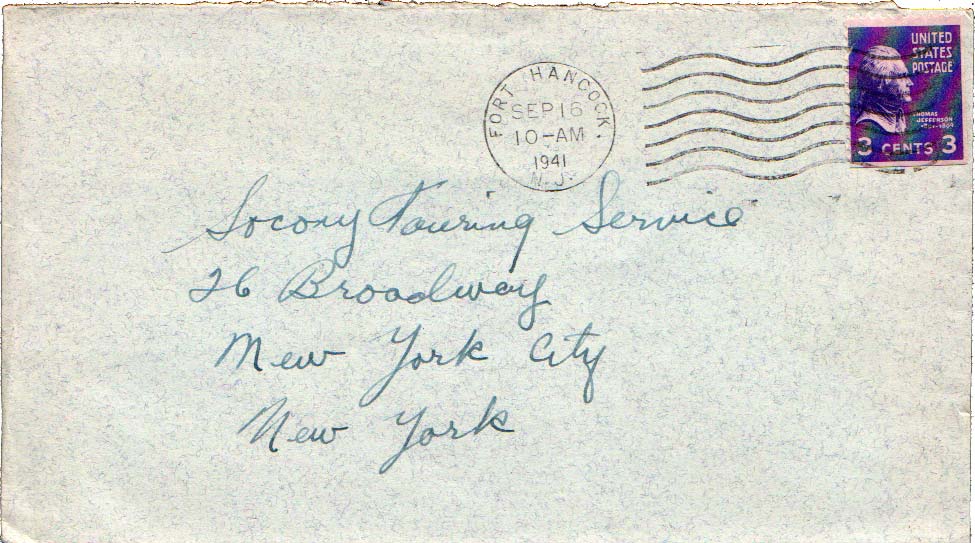 FORT HANCOCK.
SEP 16
10-AM
1941
N.J.
UNITED
STATES
POSTAGE
THOMAS
JEFFERSON
1801-1809
3 CENTS 3
Socony Touring Service
26 Broadway
New York City
New York